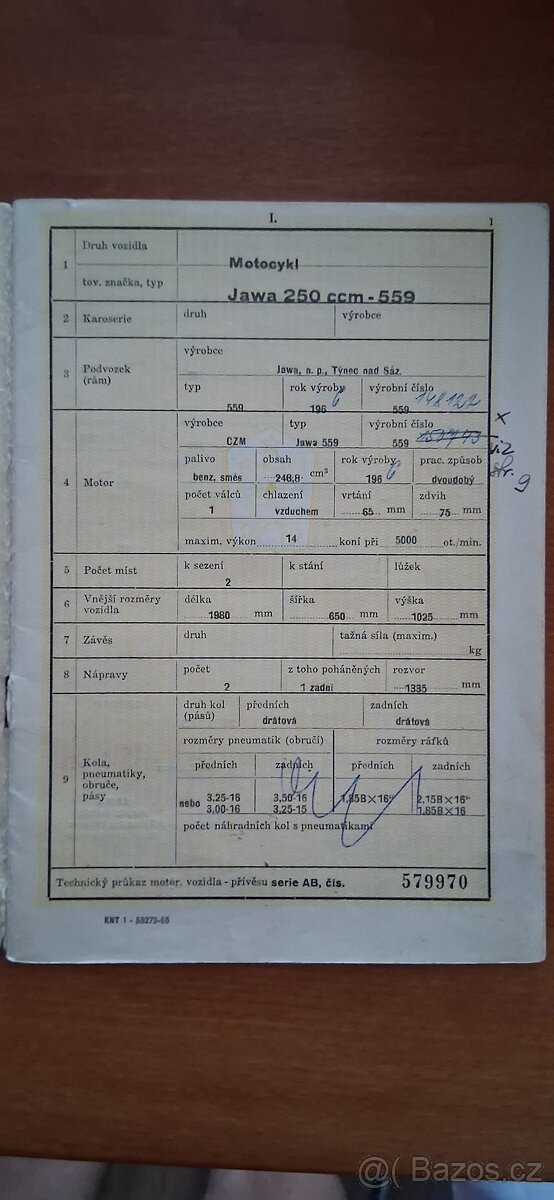 I. 1
1 Druh vozidla Motocykl
tov. značka, typ Jawa 250 ccm - 559
2 Karoserie druh výrobce
3 Podvozek (rám) výrobce Jawa, n. p., Týnec nad Sáz.
typ 559 rok výroby 1966 výrobní číslo 559 148127
4 Motor výrobce CZM typ Jawa 559 výrobní číslo 559 x viz str. 9
palivo benz. směs obsah 248,8 cm³ rok výroby 1966 prac. způsob dvoudobý
počet válců 1 chlazení vzduchem vrtání 65 mm zdvih 75 mm
maxim. výkon 14 koní při 5000 ot./min.
5 Počet míst k sezení 2 k stání lůžek
6 Vnější rozměry vozidla délka 1980 mm šířka 650 mm výška 1025 mm
7 Závěs druh tažná síla (maxim.) kg
8 Nápravy počet 2 z toho poháněných 1 zadní rozvor 1335 mm
9 Kola, pneumatiky, obruče, pásy druh kol (pásů) předních drátová zadních drátová
rozměry pneumatik (obručí) rozměry ráfků
předních zadních předních zadních
3.25-16 3,50-16 1,85B×16" 2,15B×16"
nebo 3,00-16 3.25-15 1.85B×16
počet náhradních kol s pneumatikami
Technický průkaz motor. vozidla - přívěsu serie AB, čís. 579970
KNT 1 - 55273-65
@( Bazos.cz